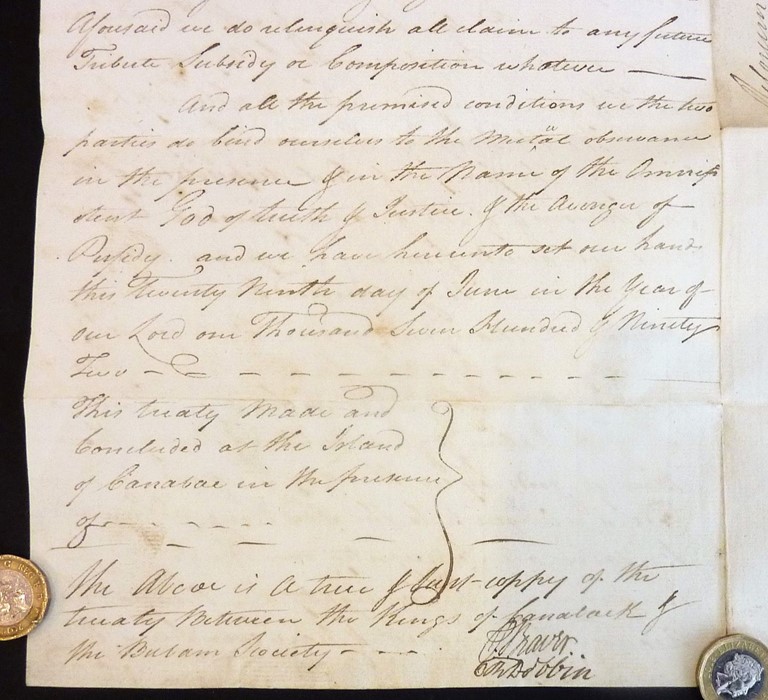 Aforesaid we do relinquish all claim to any future
Tribute Subsidy or Composition whatever —
And all the premised conditions we the two
parties do bind ourselves to the Mutal observance
in the presence & in the Name of the Omnip
otent God of truth & Justice. & the Avenger of
Perfidy. and we have hereunto set our hands
this Twenty Ninth day of June in the Year of
our Lord one Thousand Seven Hundred & Ninety
Two
This treaty Made and
Concluded at the Island
of Canabac in the presence
of
The Above is a true & Just coppy of the
treaty Between the Kings of Canaback &
the Bulam Society
Dobbin